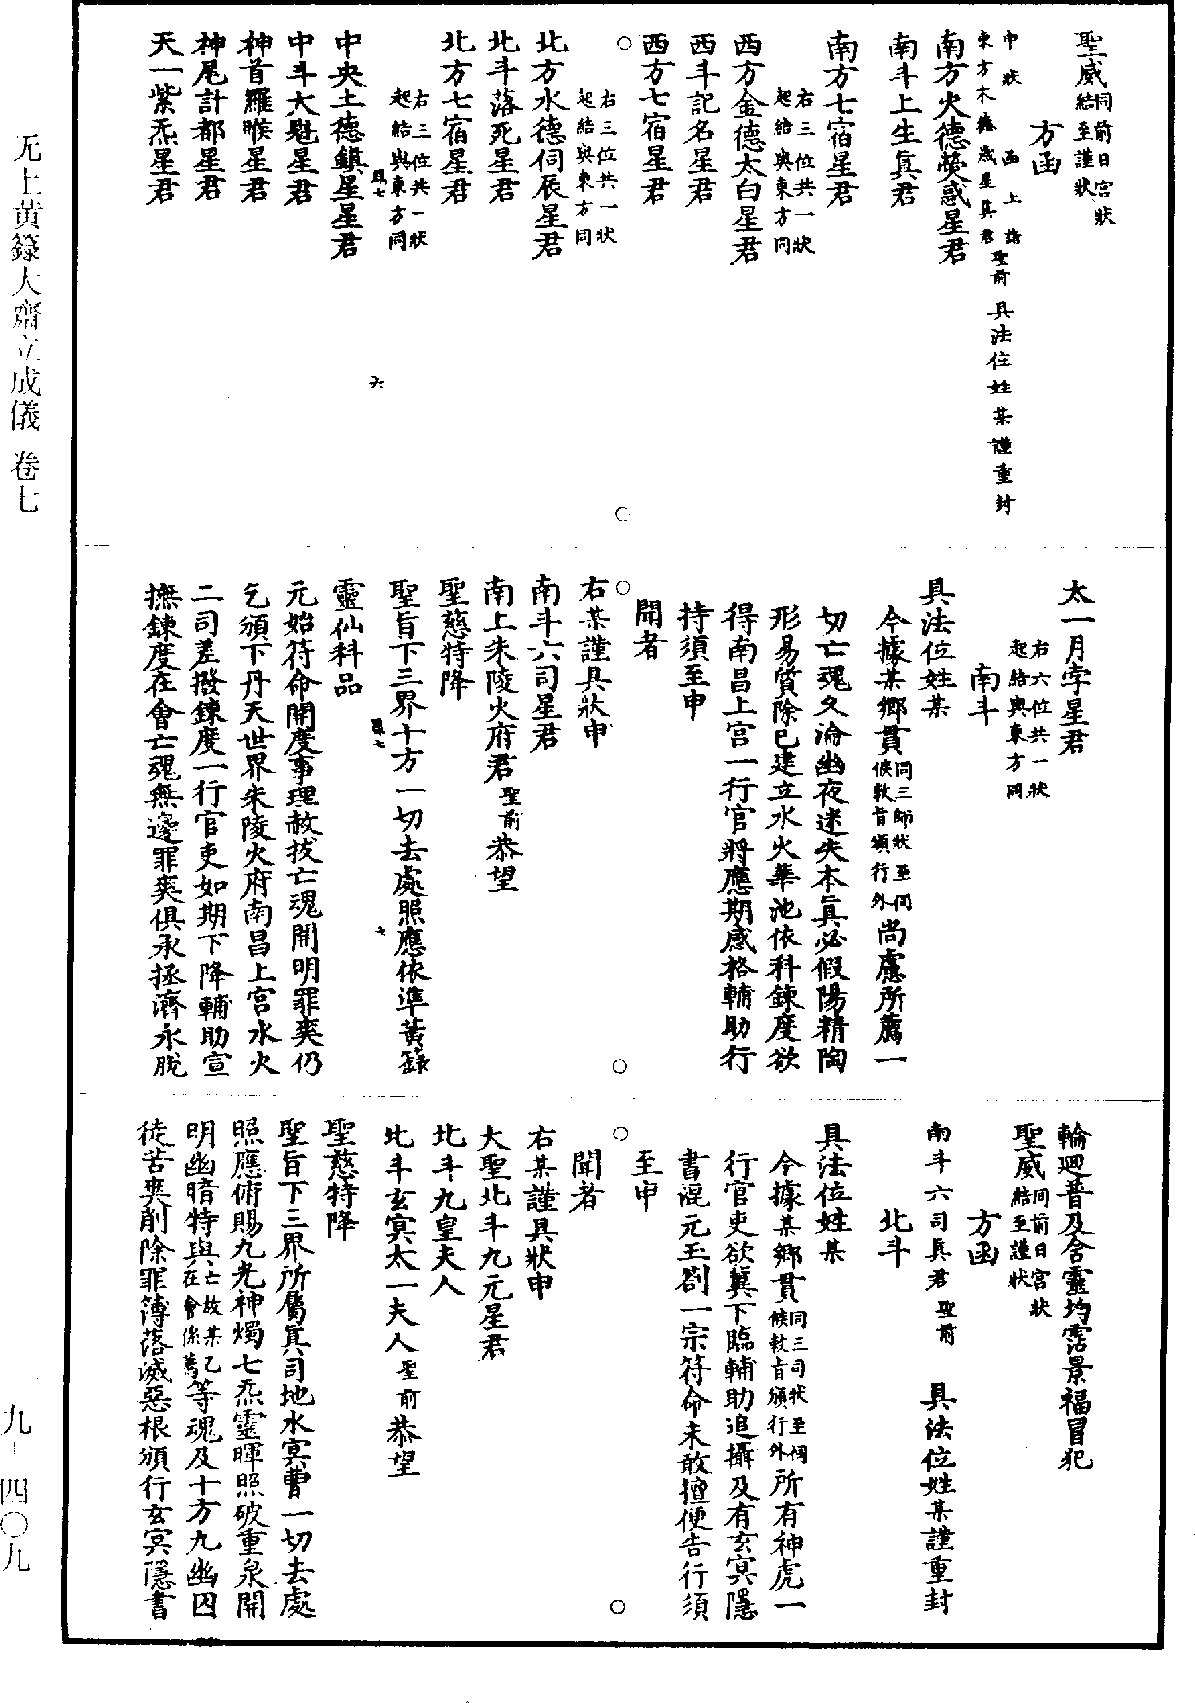 聖威同前日宮狀結至謹狀
方函
申狀　函上詣
東方木德歲星真君聖前　具法位姓某謹重封
南方火德熒惑星君
南斗上生真君
南方七宿星君
右三位共一狀
起結與東方同
西方金德太白星君
西斗記名星君
西方七宿星君
右三位共一狀
起結與東方同
北方水德伺辰星君
北斗落死星君
北方七宿星君
右三位共一狀
起結與東方同
中央土德鎮星星君
中斗大魁星君
神首羅睺星君
神尾計都星君
天一紫炁星君
太一月孛星君
右六位共一狀
起結與東方同
南斗
具法位姓某
今據某鄉貫同三師狀至伺候敕旨頒行外尚慮所薦一
切亡魂久淪幽夜迷失本真必假陽精陶
形易質除已建立水火華池依科鍊度欲
得南昌上宮一行官將應期感格輔助行
持須至申
聞者
右某謹具狀申
南斗六司星君
南上朱陵火府君聖前恭望
聖慈特降
聖旨下三界十方一切去處照應依準黃籙
靈仙科品
元始符命開度事理赦拔亡魂開明罪爽仍
乞頒下丹天世界朱陵火府南昌上宮水火
二司差撥鍊度一行官吏如期下降輔助宣
撫鍊度在會亡魂無邊罪爽俱承拯濟永脫
輪迴普及含靈均霑景福冒犯
聖威同前日宮狀結至謹狀
方函
南斗六司真君聖前　具法位姓某謹重封
北斗
具法位姓某
今據某鄉貫同三司狀至伺候敕旨頒行外所有神虎一
行官吏欲冀下臨輔助追攝及有玄冥隱
書混元玉劄一宗符命未敢擅便告行須
至申
聞者
右某謹具狀申
大聖北斗九元星君
北斗九皇夫人
北斗玄冥太一夫人聖前恭望
聖慈特降
聖旨下三界所屬真司地水冥曹一切去處
照應俯賜九光神燭七炁靈暉照破重泉開
明幽暗特與亡故某乙在會係薦等魂及十方九幽囚
徒苦爽削除罪簿落滅惡根頒行玄冥隱書
无上黃籙大齋立成儀 卷七
九-四〇九